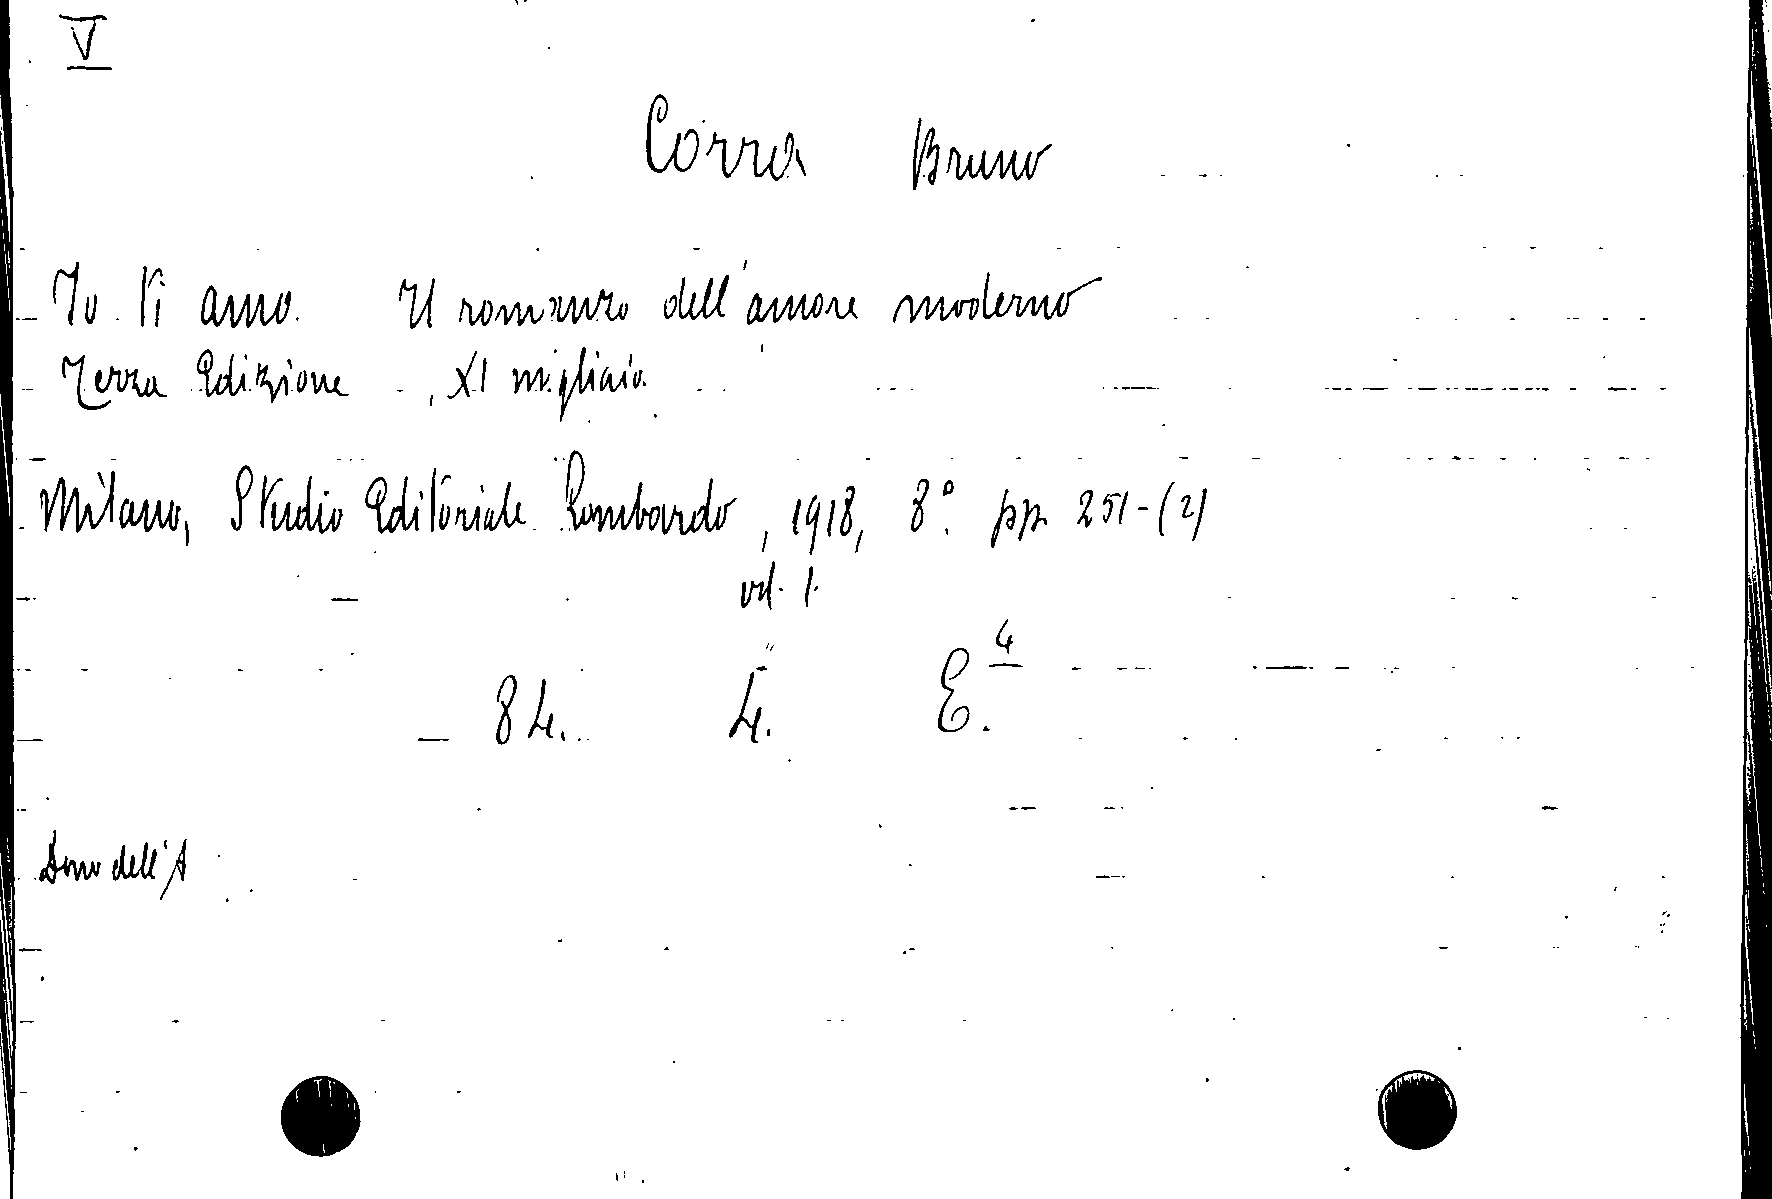 V
Corra Bruno
Io ti amo. Il romanzo dell'amore moderno
Terza Edizione, XI migliaio.
Milano, Studio Editoriale Lombardo, 1918, 8°. pp. 251-(2)
vol. 1.
84. 4. E.4
Dono dell'A